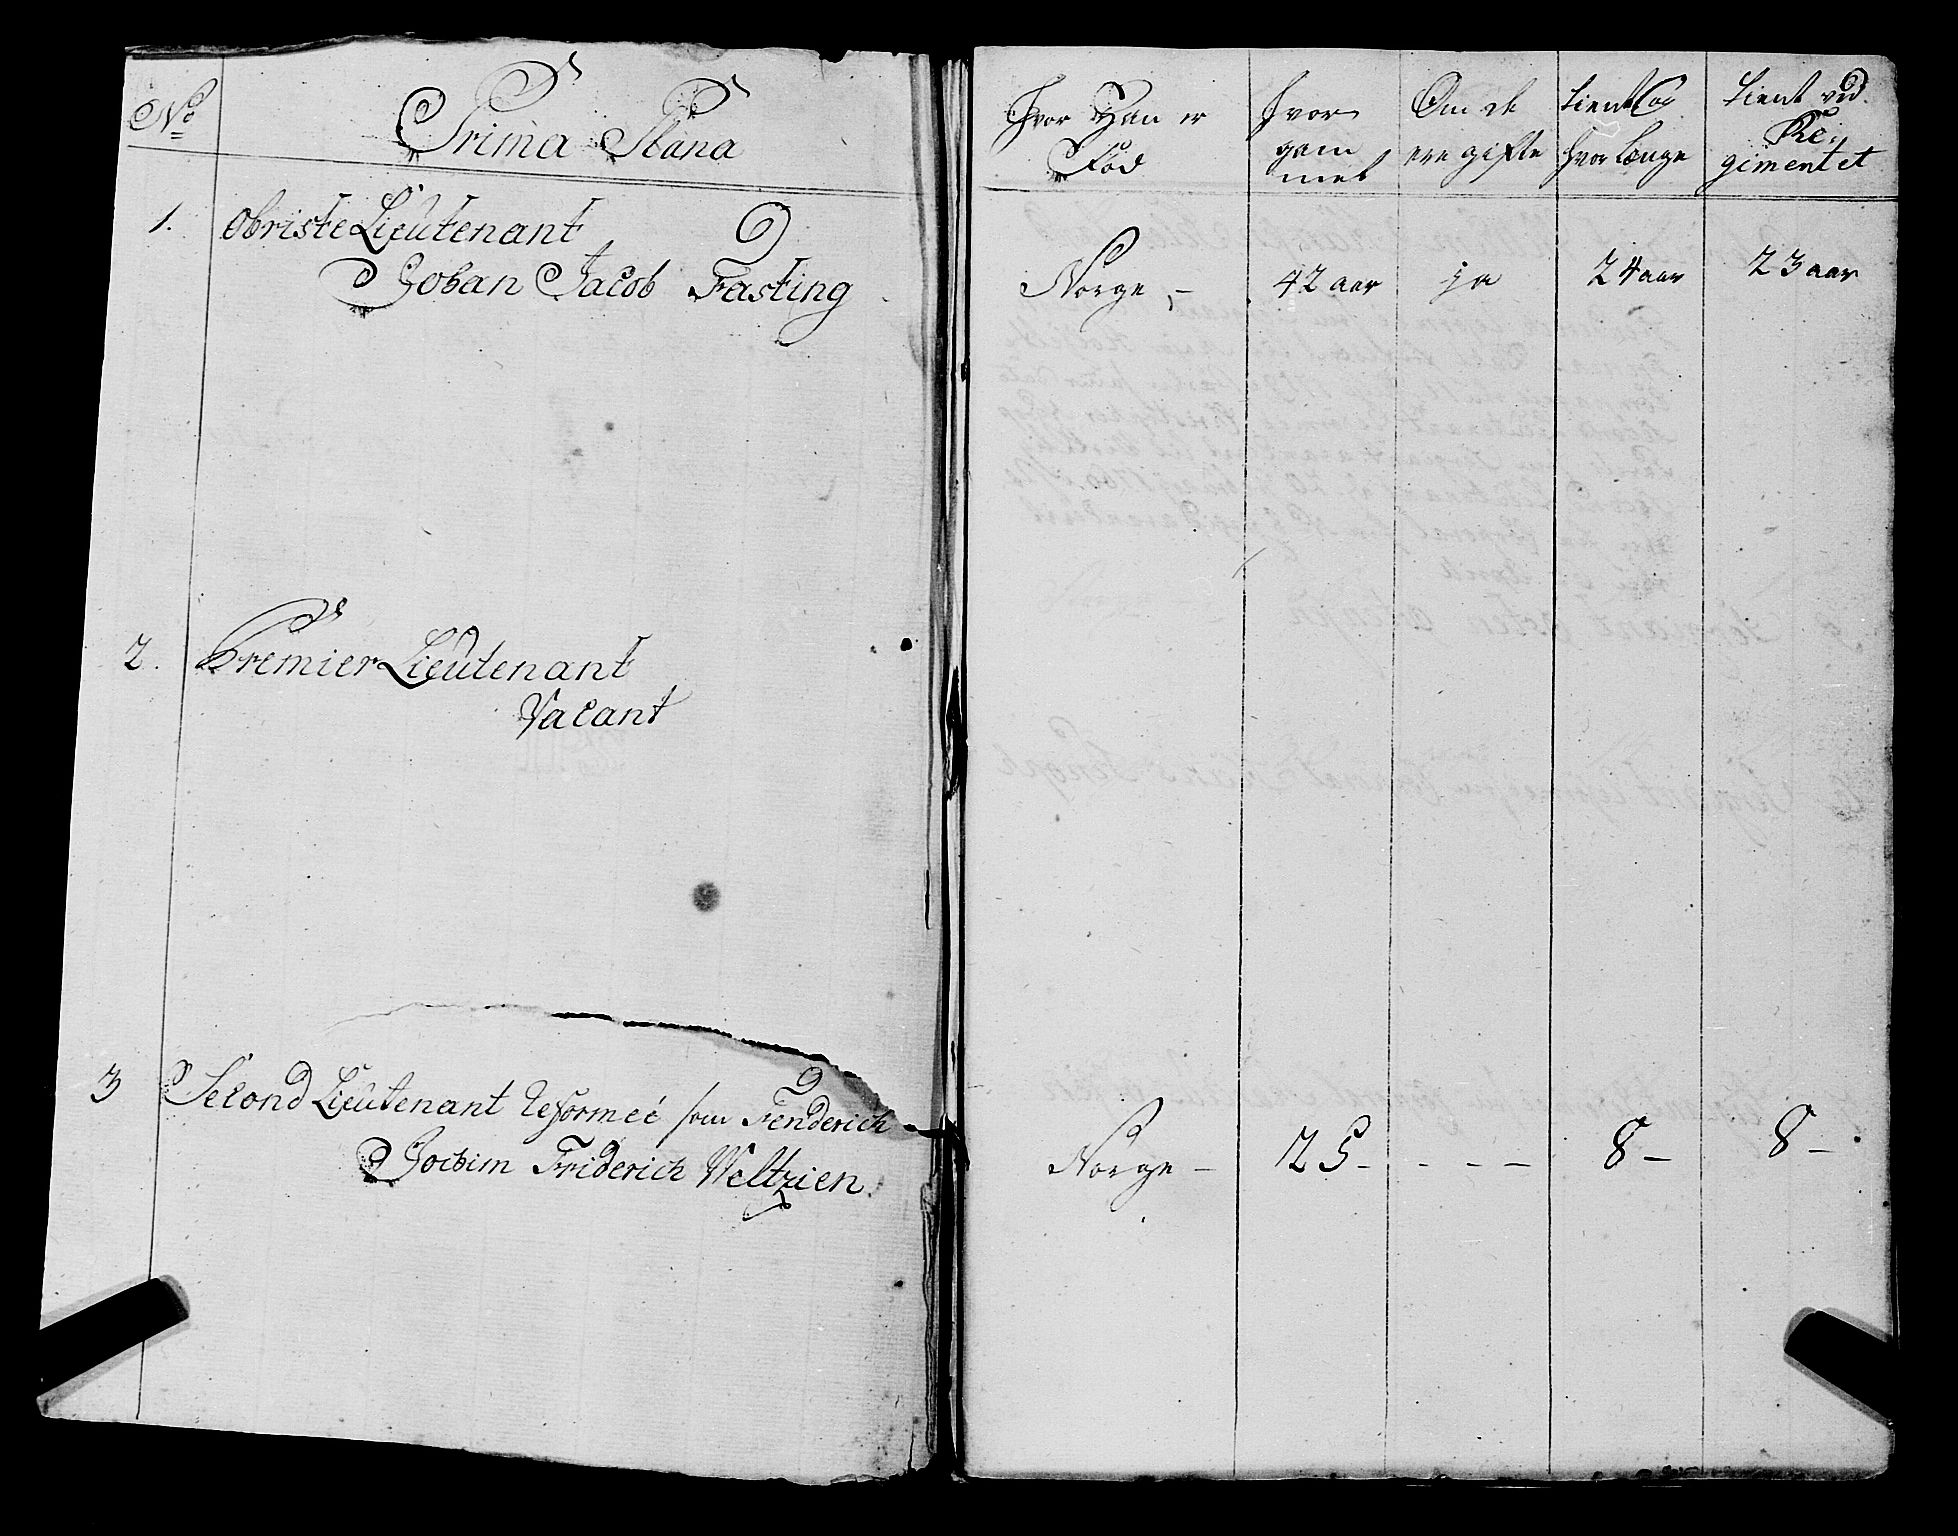 No
Prima Plana
1. Obriste Lieutenant
Johan Jacob Fasting
2. Premier Lieutenant
Vacant
3 Second Lieutenant Reformeé som Fenderich
Jochim Friderich Weltzien
Hvor Han er
Fød
Hvor
gam
mel
Om de
ere gifte
tient Og
hvor længe
tient ved
Re-
gimentet
Norge, - 42 aar ja 24 aar 23 aar
Norge - 25 - - - - 8 - 8 -